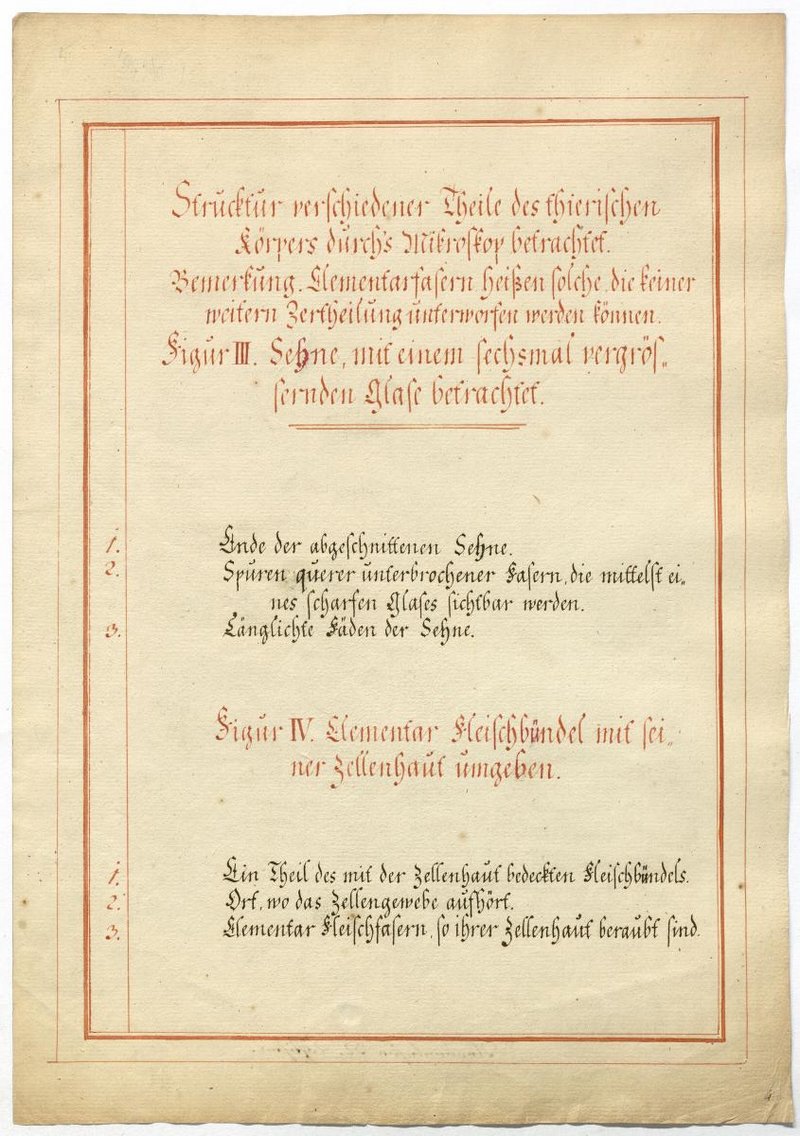 Strucktur verschiedener Theile des thierischen
Körpers durch's Mikroskop betrachtet.
Bemerkung. Elementarfasern heißen solche, die keiner
weitern Zertheilung unterworfen werden können.
Figur III. Sehne, mit einem sechsmal vergrös„
sernden Glase betrachtet.
1. Ende der abgeschnittenen Sehne.
2. Spuren querer unterbrochener Fasern, die mittelst ei„
nes scharfen Glases sichtbar werden.
3. Länglichte Fäden der Sehne.
Figur IV. Elementar Fleischbündel mit sei„
ner Zellenhaut umgeben.
1. Ein Theil des mit der Zellenhaut bedeckten Fleischbündels.
2. Ort, wo das Zellengewebe aufhört.
3. Elementar Fleischfasern, so ihrer Zellenhaut beraubt sind.